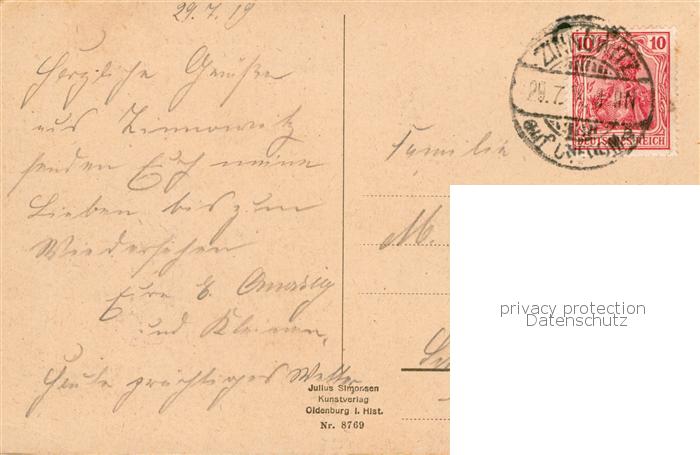 29.7.19
Herzliche Grüße
aus Zinnowitz
senden Euch meine
Lieben bis zum
Wiedersehen
Eure E.
und Kleinen.
Heute prächtiges Wetter
Familie
M.
10 10
DEUTSCHES REICH
ZINNOWITZ
29.7. N
auf USEDOM
privacy protection
Datenschutz
Julius Simonsen
Kunstverlag
Oldenburg i. Hlst.
Nr. 8769